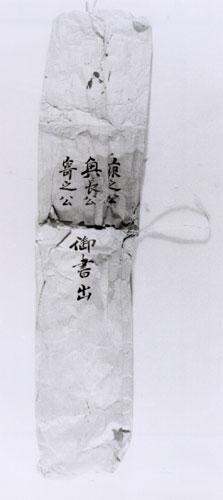 康之公
興長公
寄之公
御書出